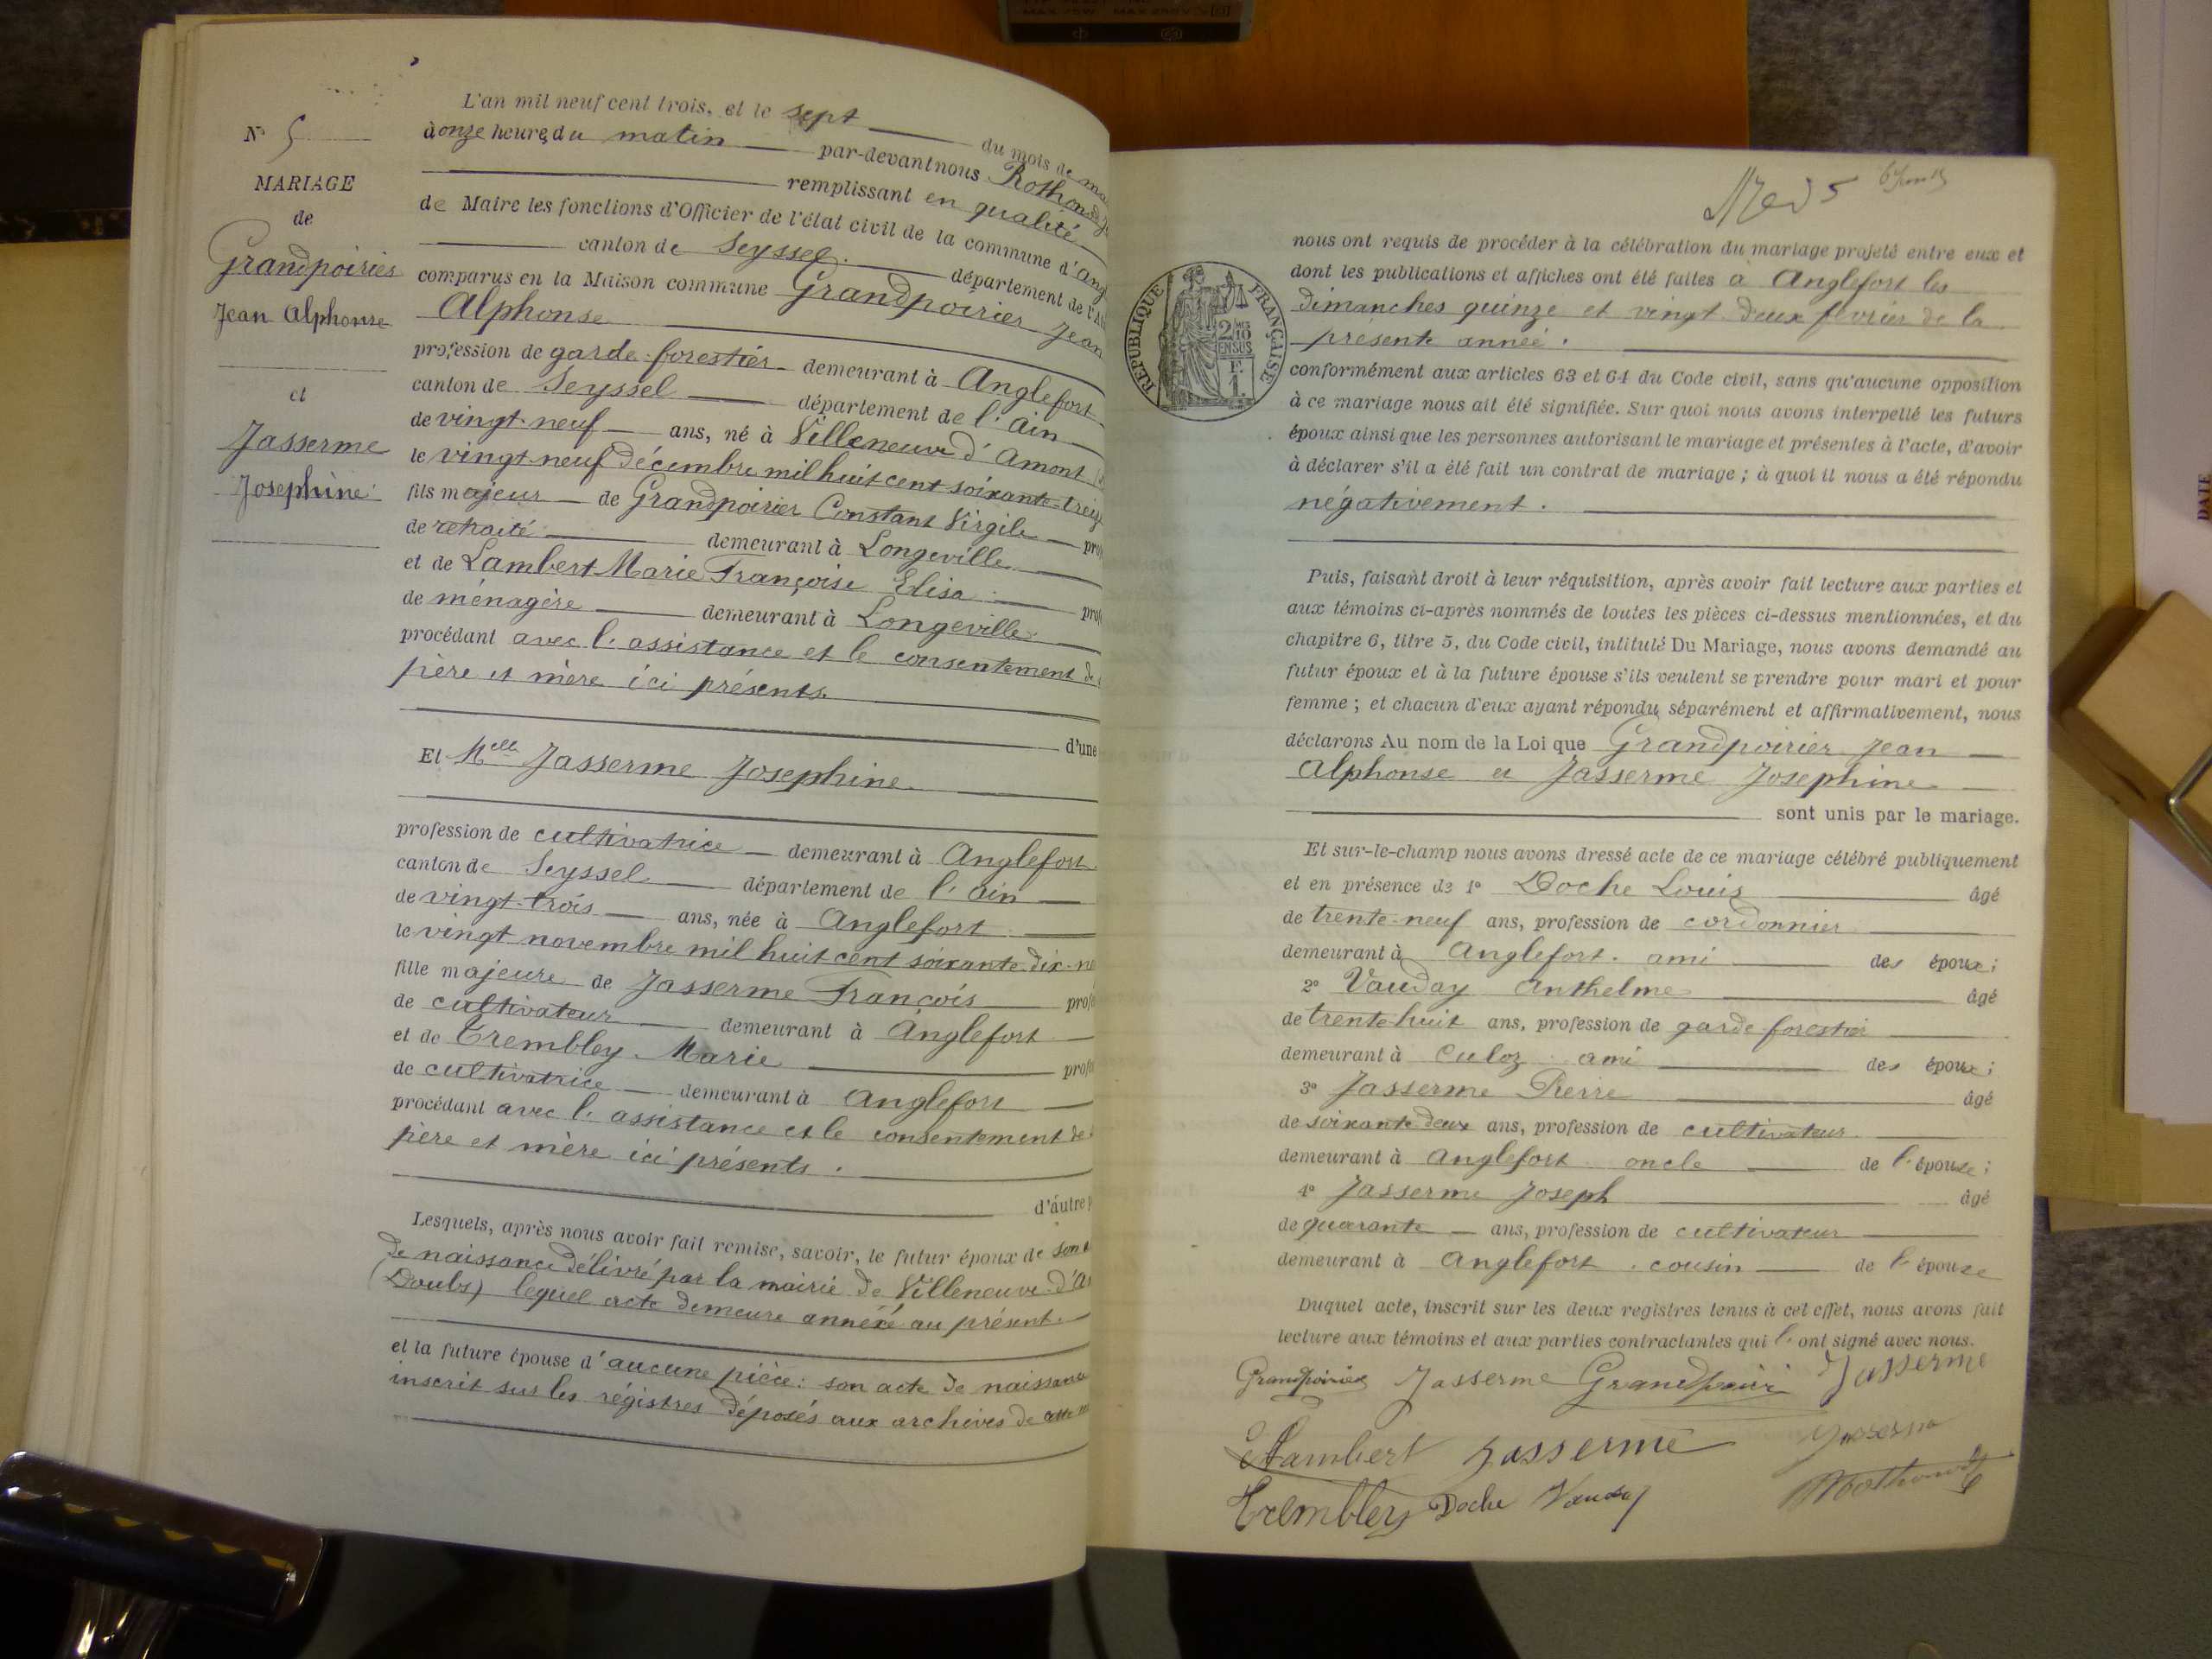 N° 5
MARIAGE
de
Grandpoirier
Jean Alphonse
et
Jasserme
Josephine
L'an mil neuf cent trois, et le sept du mois de
à onze heures du matin par-devant nous Rothonod
remplissant en qualité
de Maire les fonctions d'Officier de l'état civil de la commune d'
canton de Seyssel département de l'
comparus en la Maison commune Grandpoirier Jean
Alphonse
profession de garde-forestier demeurant à Anglefort
canton de Seyssel département de l'Ain
de vingt-neuf ans, né à Villeneuve d'Amont
le vingt-neuf décembre mil huit cent soixante-treize
fils majeur de Grandpoirier Constant Virgile
de retraité demeurant à Longeville
et de Lambert Marie Françoise Elisa
de ménagère demeurant à Longeville
procédant avec l'assistance et le consentement de
père et mère ici présents.
d'une
Et Melle Jasserme Josephine
profession de cultivatrice demeurant à Anglefort
canton de Seyssel département de l'Ain
de vingt-trois ans, née à Anglefort
le vingt novembre mil huit cent soixante-dix-
fille majeure de Jasserme François
de cultivateur demeurant à Anglefort
et de Trembley Marie
de cultivatrice demeurant à Anglefort
procédant avec l'assistance et le consentement de
père et mère ici présents.
d'autre
Lesquels, après nous avoir fait remise, savoir, le futur époux de son
de naissance délivré par la mairie de Villeneuve d'
(Doubs) lequel acte demeure annéxé au présent.
et la future épouse d'aucune pièce: son acte de naissance
inscrit sur les régistres déposés aux archives de cette
5
nous ont requis de procéder à la célébration du mariage projeté entre eux et
dont les publications et affiches ont été faites à Anglefort les
dimanches quinze et vingt-deux février de la
présente année.
REPUBLIQUE FRANÇAISE
2/10
EN SUS
conformément aux articles 63 et 64 du Code civil, sans qu'aucune opposition
à ce mariage nous ait été signifiée. Sur quoi nous avons interpellé les futurs
époux ainsi que les personnes autorisant le mariage et présentes à l'acte, d'avoir
à déclarer s'il a été fait un contrat de mariage ; à quoi il nous a été répondu
négativement.
Puis, faisant droit à leur réquisition, après avoir fait lecture aux parties et
aux témoins ci-après nommés de toutes les pièces ci-dessus mentionnées, et du
chapitre 6, titre 5, du Code civil, intitulé Du Mariage, nous avons demandé au
futur époux et à la future épouse s'ils veulent se prendre pour mari et pour
femme ; et chacun d'eux ayant répondu séparément et affirmativement, nous
déclarons Au nom de la Loi que Grandpoirier Jean
Alphonse et Jasserme Josephine
sont unis par le mariage.
Et sur-le-champ nous avons dressé acte de ce mariage célébré publiquement
et en présence de 1° Doche Louis âgé
de trente-neuf ans, profession de cordonnier
demeurant à Anglefort. ami des époux;
2° Vauday Anthelme âgé
de trente-huit ans, profession de garde-forestier
demeurant à Culoz ami des époux;
3° Jasserme Pierre âgé
de soixante-deux ans, profession de cultivateur
demeurant à Anglefort oncle de l'épouse;
4° Jasserme Joseph âgé
de quarante ans, profession de cultivateur
demeurant à Anglefort. cousin de l'épouse
Duquel acte, inscrit sur les deux registres tenus à cet effet, nous avons fait
lecture aux témoins et aux parties contractantes qui l'ont signé avec nous.
Grandpoirier Jasserme Grandpoirier Jasserme
Lambert Jasserme Jasserme
Trembley Doche Vauday Rothonod
DATE